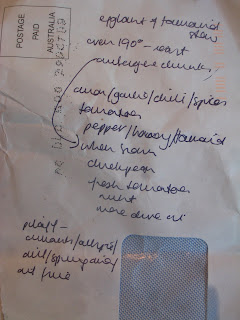 POSTAGE
PAID
AUSTRALIA
eggplant & tamarind
stew
oven 190° - roast
aubergine chunks
onion/garlic/chilli/spices
tomatoes
pepper/honey/tamarind
when warm
chickpeas
fresh tomatoes
mint
more olive oil
pilaff -
currants/allspice/
dill/spring onion/